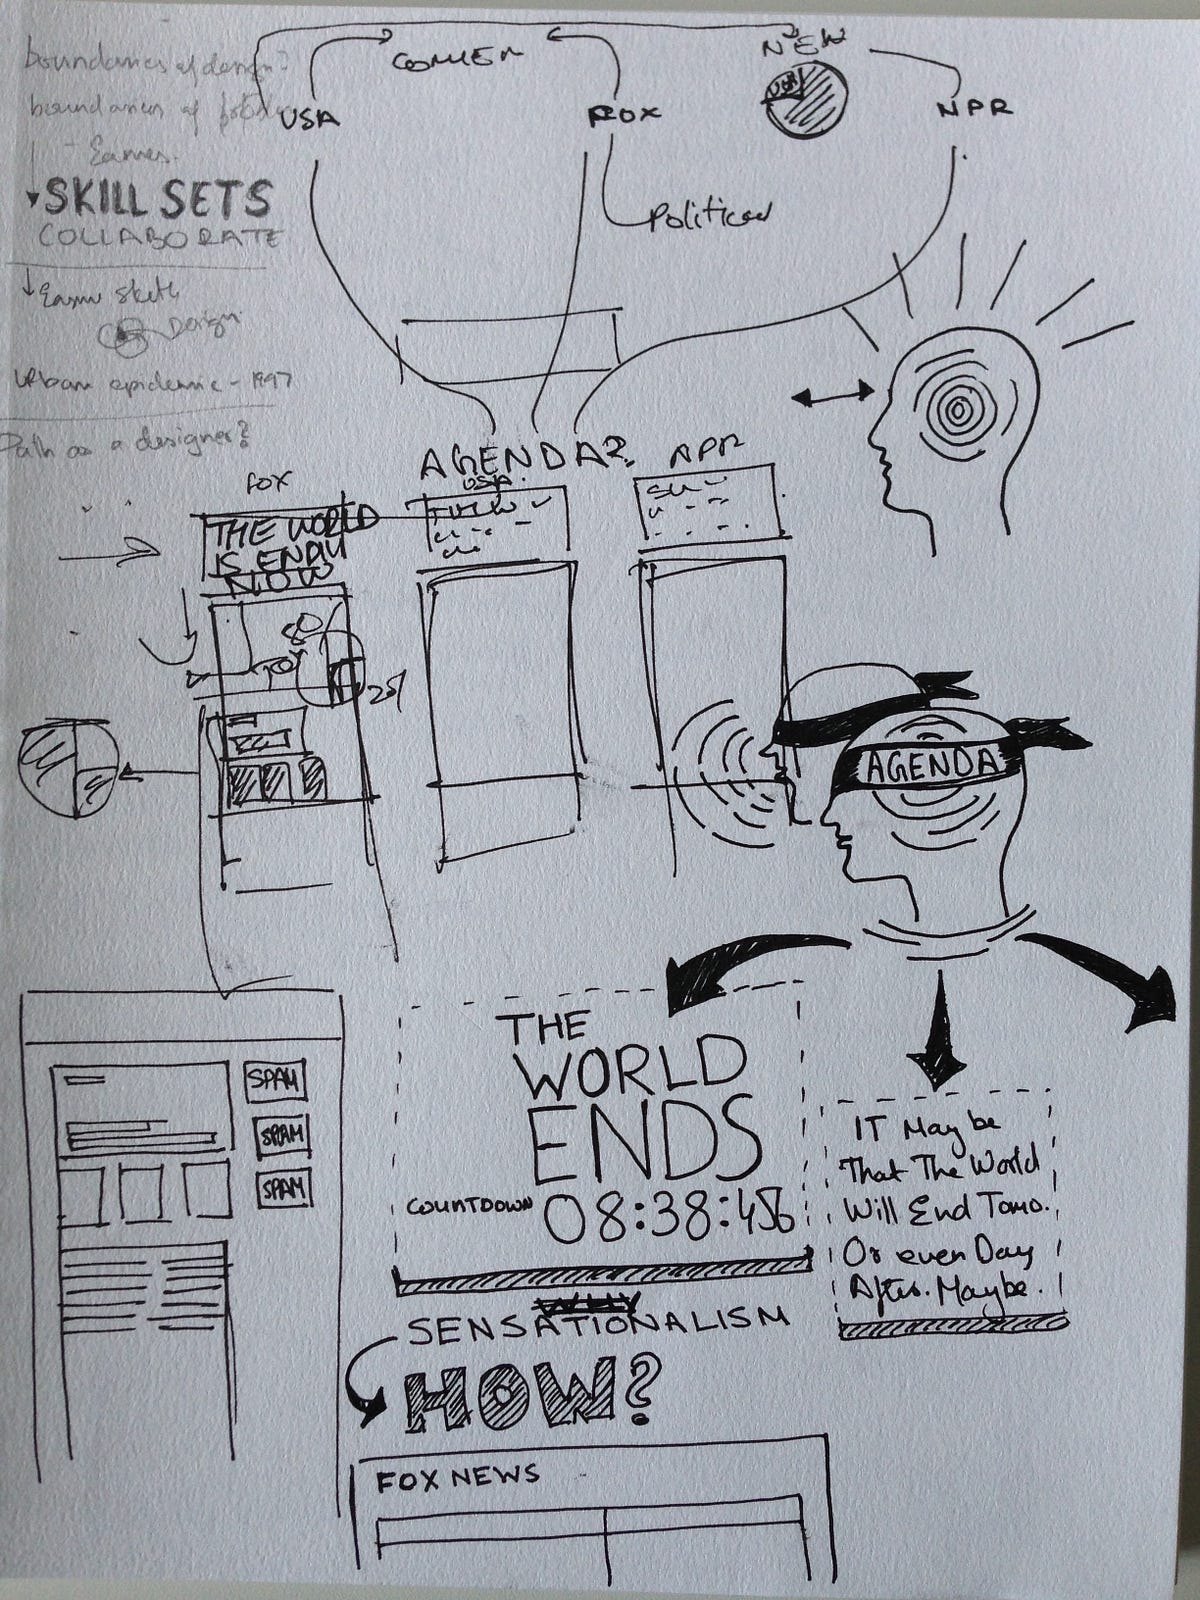 boundaries of design?
boundaries of
- Eames.
SKILL SETS
COLLABORATE
Design
Urban epidemic - 1997
Path as a designer?
NEW
USA
FOX
NPR
Political
AGENDA?
FOX
USA
NPR
THE WORLD
IS
NOW
AGENDA
THE
WORLD
ENDS
COUNTDOWN 08:38:456
IT May be
That The World
Will End Tomo.
Or even Day
After. Maybe.
SPAM
SPAM
SPAM
WHY
SENSATIONALISM
HOW?
FOX NEWS